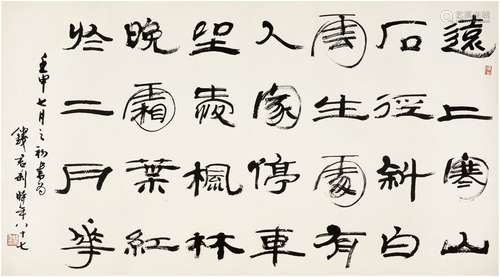 遠上寒山
石徑斜白
雲生處有
人家停車
坐愛楓林
晚霜葉紅
於二月華
壬申七月之初
錢君匋時年八十七